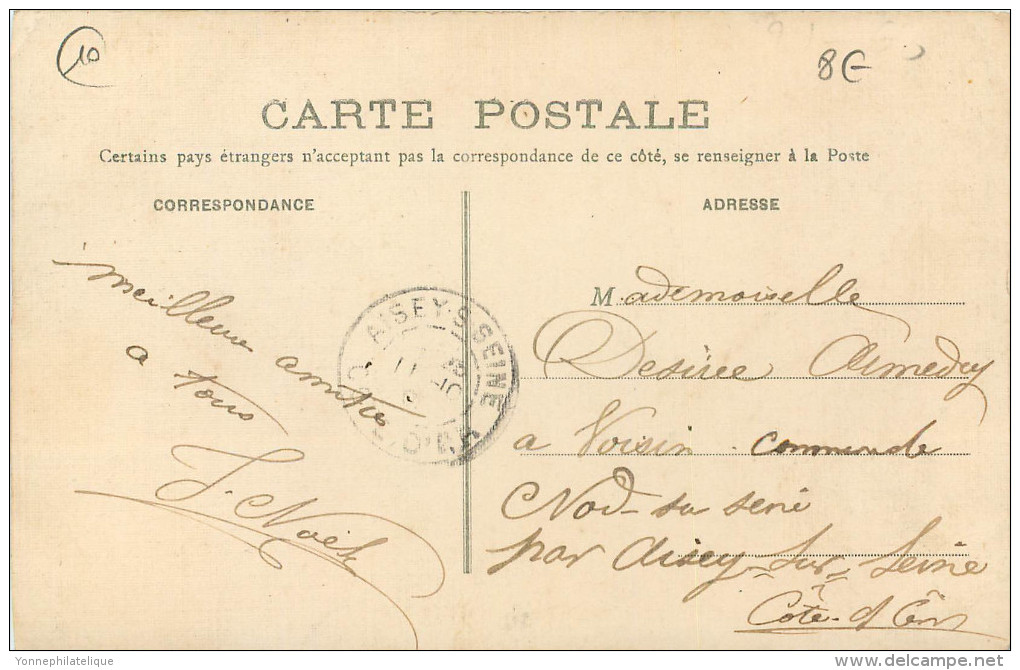 10
8€
CARTE POSTALE
Certains pays étrangers n'acceptant pas la correspondance de ce côté, se renseigner à la Poste
CORRESPONDANCE
meilleur amitié
a tous
J. Noël
AISEY-S-SEINE
CÔTE D'OR
ADRESSE
Mademoiselle
Désirée
a Voisin commende
Nod-su sene
par Aisey-sur-Seine
Côte-d'Or
Yonnephilatelique
delcampe.net